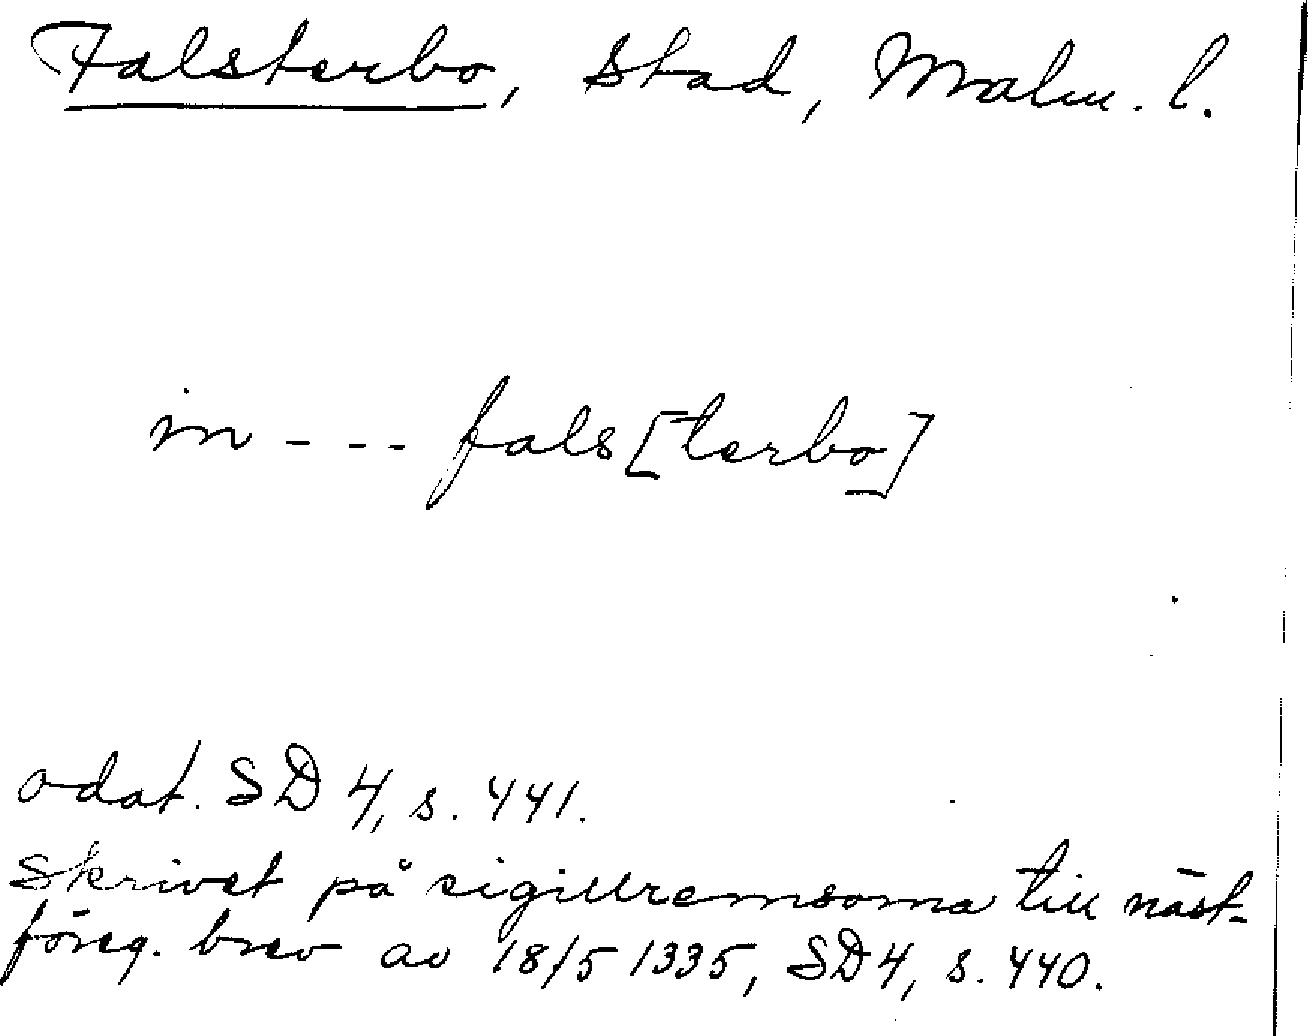 Falsterbo, stad, Malm. l.
in - - - fals[terbo]
odat. SD 4, s. 441.
Skrivet på sigillremsorna till näst-
föreg. brev av 18/5 1335, SD 4, s. 440.